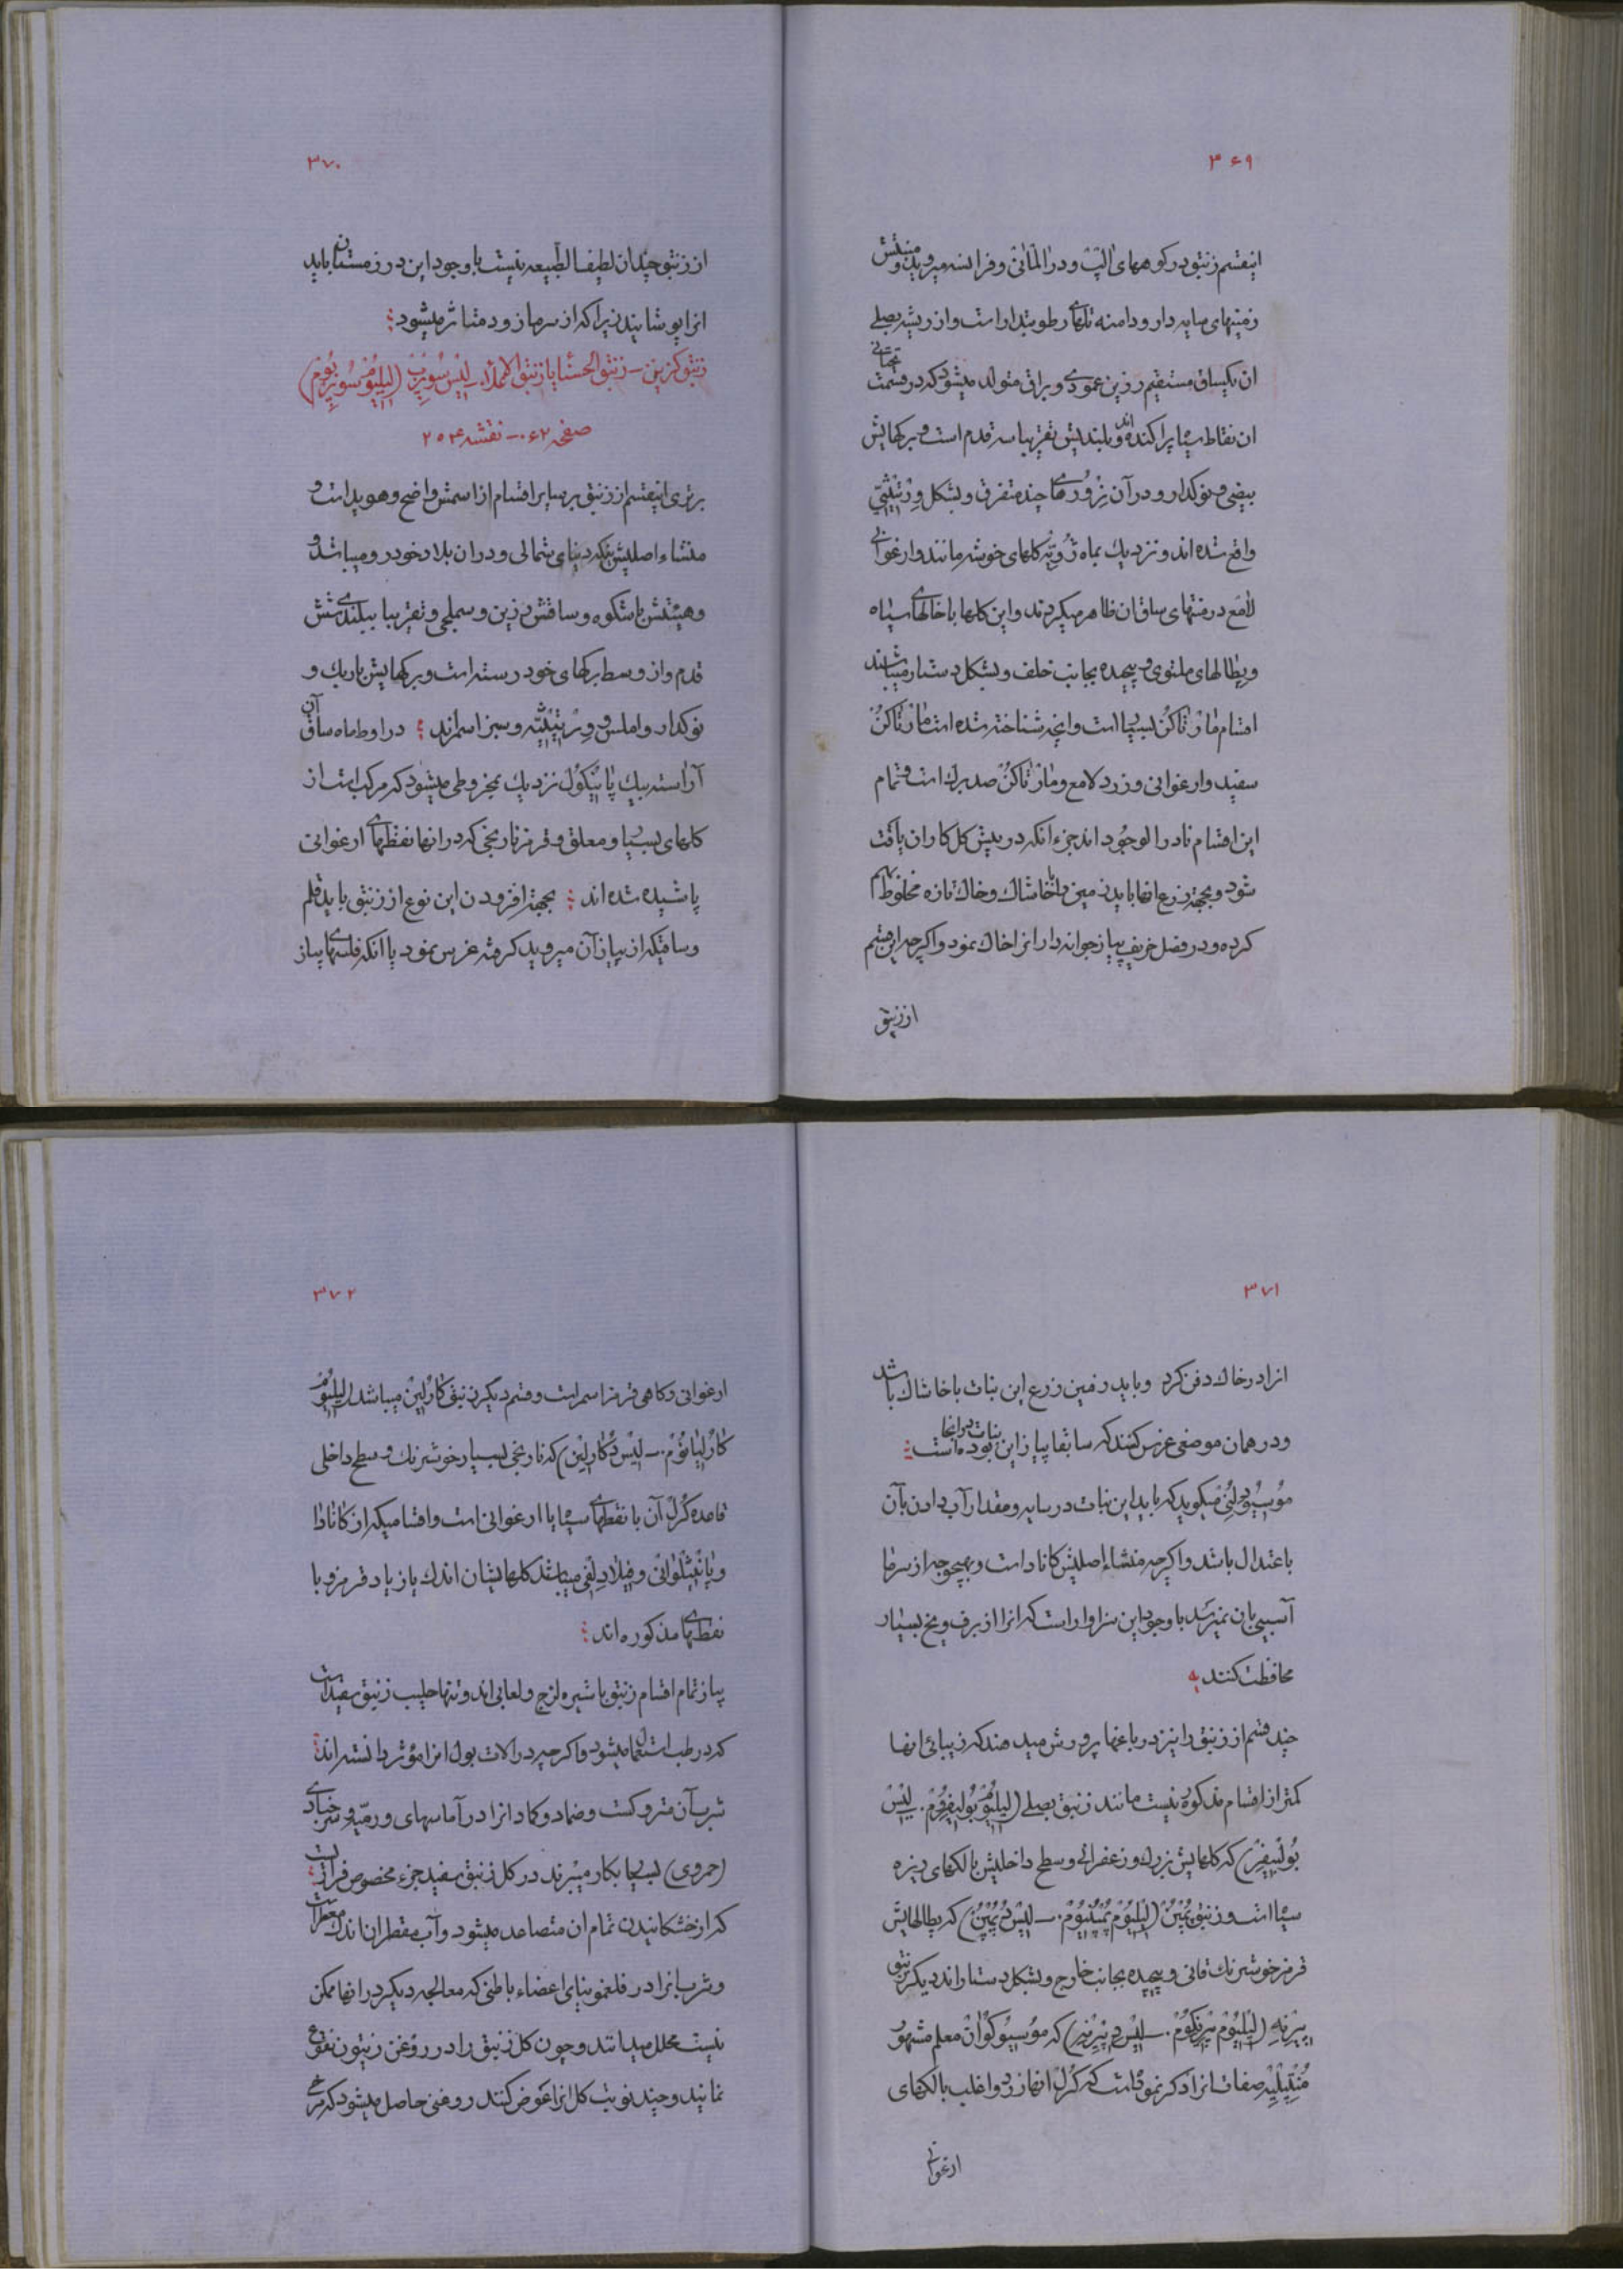 ۳۶۹
اینقسم زنبق در کوههای الپ و در المانی و فرانسه میروید و منبتش
زمینهای سایه دار و دامنه تلهای رطوبتدار است و از ریشه بصلی
ان یکساق مستقیم رزین عمودی و براق متولد میشود که در قسمت تحتانی
ان نقاط سیاه پراکنده اند و بلندیش تقریبا سه قدم است و برکهایش
بیضی و نوکدار و در آن نزورهای چند متفرق و بشکل ورتیثی
واقع شده اند و نزدیک بماه ژویه کلهای خوشه مانند و ارغوانی
لامع در منتهای ساق ان ظاهر میکردند و این کلها با خالهای سیاه
و پطالهای ملتوی و پیچیده بجانب خلف و بشکل دستار میباشند
اقسام مارتاکن بسیار است و انچه شناخته شده است مارتاکن
سفید و ارغوانی و زرد لامع و مارتاکن صد برک است و تمام
این اقسام نادر الوجود اند جزء انکه در پیش کل کاران یافت
شود و بجهة زرع انها باید زمین را با خاشاک و خاک تازه مخلوط بهم
کرده و در فصل خریف پیاز جوانه دار انرا خاک نمود و اکرچه این قسم
از زنبق
۳۷۰
از زنبق چندان لطیف الطبیعه نیست با وجود این در زمستان باید
انرا پوشانید زیرا که از سرما زود متاثر میشود
زنبق کزین – زنبق الحسنا یا زنبق الاحمدا – لیس سوپرب (لیلیوم سوپربوم)
صفحه ۶۲۰ – نقشه ۲۵۲۴
برتری اینقسم از زنبق بر سایر اقسام از اسمش واضح و هویدا است و
منشاء اصلیش ینکه دنیای شمالی و در ان بلاد خود رو میباشد و
و هیئتش با شکوه و ساقش رزین و سملجی و تقریبا ببلندی شش
قدم و از وسط برکهای خود رسته است و برکهایش باریک و
نوکدار و املس و ورتیثیه و سبز اسمرند در اوسط ماه ساق آن
آراسته بیک پانیکول نزدیک بمخروطی میشود که مرکب است از
کلهای بسیار و معلق و قرمز نارنجی که در انها نقطهای ارغوانی
پاشیده شده اند بجهة افزودن این نوع از زنبق باید قلم
و ساقیکه از پیاز آن میروید کرفته غرس نمود یا انکه فلسهای پیاز
۳۷۱
انرا در خاک دفن کرد و باید زمین زرع این نبات با خاشاک باشد
و در همان موضعی غرس کنند که سابقا پیاز این نبات در انجا بوده است
موسیو دلنی میکوید که باید این نبات در سایه و مقدار آب دادن بآن
باعتدال باشد و اکرچه منشاء اصلیش کانادا است و بهیچوجه از سرما
آسیبی بان نمیرسد با وجود این سزاوار است که انرا از برف و یخ بسیار
محافظت کنند
چند قسم از زنبق را نیز در باغها پرورش میدهند که زیبائی انها
کمتر از اقسام مذکوره نیست مانند زنبق بصلی (لیلیوم بولبیفروم. لیس
بولبیفر) که کلهایش بزرک و زعفرانی و سطح داخلیش با لکهای ریزه
سیاه است و زنبق پمپن (لیلیوم پمپنیوم. – لیس د پمپن) که پطالهایش
قرمز خوشرنک قانی و پیچیده بجانب خارج و بشکل دستاراند دیکر زنبق
پیرنه (لیلیوم پیرنیکوم. – لیس د پیرنه) که موسیو کوان معلم مشهور
منتپلیه صفات انرا ذکر نموده است که کرل انها زرد و اغلب با لکهای
ارغوانی
۳۷۲
ارغوانی و کاهی قرمز اسمر است و قسم دیکر زنبق کارلین میباشد (لیلیوم
کارلیانوم. – لیس د کارلین) که نارنجی بسیار خوشرنک و سطح داخلی
قاعده کرل آن با نقطهای سیاه یا ارغوانی است و اقسامیکه از کانادا
و پانسیلوانی و فیلادلفی میباشند کلهایشان اندک یا زیاد قرمز و با
نقطهای مذکوره اند
پیاز تمام اقسام زنبق با شیره لزج و لعابی اند و تنها حلیب زنبق سفید است
که در طب استعمال میشود و اکرچه در الات بول انرا مؤثر دانسته اند
شرب آن متروکست و ضماد و کماد انرا در آماسهای ورمیه و سرخبادی
(حمروی) بسیار بکار میبرند در کل زنبق سفید جزء مخصوص فراریست
که از خشکانیدن تمام ان متصاعد میشود و آب مقطر ان اندک معطر است
و شرب انرا در فلغمونیای اعضاء باطنی که معالجه دیکر در انها ممکن
نیست محلل میدانند و چون کل زنبق را در روغن زیتون نقوع
نمایند و چند نوبت کل انرا عوض کنند روغنی حاصل میشود که مرخی